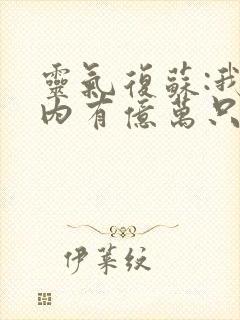 靈氣復蘇:我
內有億萬只
伊萊紋